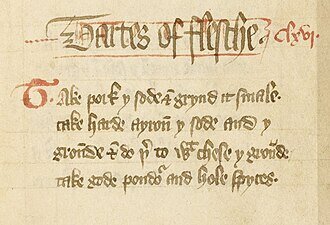 Tartes of flesche. clxvi.
Take pork y sode & grynd it smale.
take harde ayron y sode and y
gronde & do þ to wt chese y gronde
take gode pondor and hole spyces.